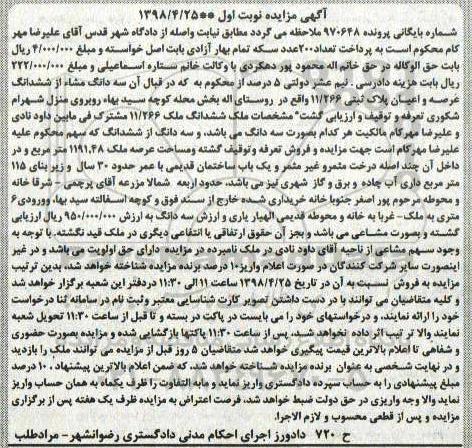 آگهی مزایده نوبت اول **۱۳۹۸/۴/۲۵
شماره بایگانی پرونده ۹۷۰۶۴۸ ملاحظه می گردد مطابق نیابت واصله از دادگاه شهر قدس آقای علیرضا مهر
کام محکوم است به پرداخت تعداد۲۰۰عدد سکه تمام بهار آزادی بابت اصل خواسته و مبلغ ۴/۰۰۰/۰۰۰ ریال
بابت حق الوکاله در حق خانم اله محمود پور دهکردی با وکالت خانم ستاره اسماعیلی و مبلغ ۲۲۲/۰۰۰
ریال بابت هزینه دادرسی . نیم عشر دولتی ۵ درصد از محکوم به که در قبال آن سه دانگ مشاع از ششدانگ
عرصه و اعیان پلاک ثبتی ۱۱/۲۶۶ واقع در روستای اله بخش محله کوچه سید بهاء روبروی منزل شهرام
شکوری تعرفه و توقیف و ارزیابی گشت" مشخصات ملک ششدانگ ملک ۱۱/۲۶۶ مشترک فی مابین داود نادی
و علیرضا مهرکام مالکیت هر کدام بصورت سه دانگ می باشد، و سه دانگ از ششدانگ که سهم محکوم علیه
علیرضا مهرکام است جهت مزایده و فروش تعرفه و توقیف گشته ومساحت عرصه ملک ۱۱۹۱,۴۸ متر مربع و در
داخل آن چند اصله درخت مثمرو غیر مثمر و یک باب ساختمان قدیمی با عمر حدود ۳۰ سال و زیر بنای ۱۱۵
متر مربع داری آب چاده و برق و گاز شهری نیز می باشد، حدود اربعه شمالا مزرعه آقای پرچمی – شرقا خانه
و محوطه مرحوم پور اصغر جنوبا خانه خریداری شده خارج از سند فوق و کوچه اسفالته سید بهاء ورودی۶
متری به ملک– غربا به خانه و محوطه قدیمی الهیار یاری و ارزش سه دانگ به ارزش ۹۵۰/۰۰۰/۰۰۰ ریال ارزیابی
گشته و بصورت مشاعی می باشد و بجز آن حقوق ارتفاقی یا انتفاعی دیگری در ملک قید نگشته . با توجه به
وجود سهم مشاعی از ناحیه آقای داود نادی در ملک نامبرده در مزایده دارای حق اولویت می باشد و در غیر
اینصورت سایر شرکت کنندگان در صورت اعلام واریز۱۰ درصد برنده مزایده شناخته خواهد شد، بدین ترتیب
مزایده به فروش نسبت به آن در تاریخ ۱۳۹۸/۴/۲۵ ساعت ۱۱ الی ۱۱:۳۰ دردفتر این شعبه برگزار خواهد شد
و کلیه متقاضیان می توانند با در دست داشتن تصویر کارت شناسایی معتبر وثبت نام در سامانه ثنا درخواست
خود را ارائه نمایند، و درخواستهای خود را می بایست در پاکت در بسته و تا قبل از ساعت ۱۱:۳۰ تحویل شعبه
نمایند والا تر تیب اثر داده نخواهد شد، پس از ساعت ۱۱:۳۰ پاکتها بازگشایی شده و مزایده بصورت حضوری
و شفاهی تا اعلام بالاترین قیمت پیگیری خواهد شد متقاضیان ۵ روز قبل از مزایده می توانند ملک را بازدید
و در نهایت شخصی به عنوان برنده مزایده شناخته خواهد شد، که ضمن اعلام بالاترین پیشنهاد ، ۱۰ درصد
مبلغ پیشنهادی را به حساب سپرده دادگستری واریز نماید و مابه التفاوت را ظرف یکماه به همان حساب واریز
نماید والا وجه واریزی در حق دولت ضبط خواهد شد، فرصت اعتراض به مزایده ظرف یک هفته پس از برگزاری
مزایده و پس از قطعی محسوب و لازم الاجرا.
ح ۷۲۰ دادورز اجرای احکام مدنی دادگستری رضوانشهر– مرادطلب